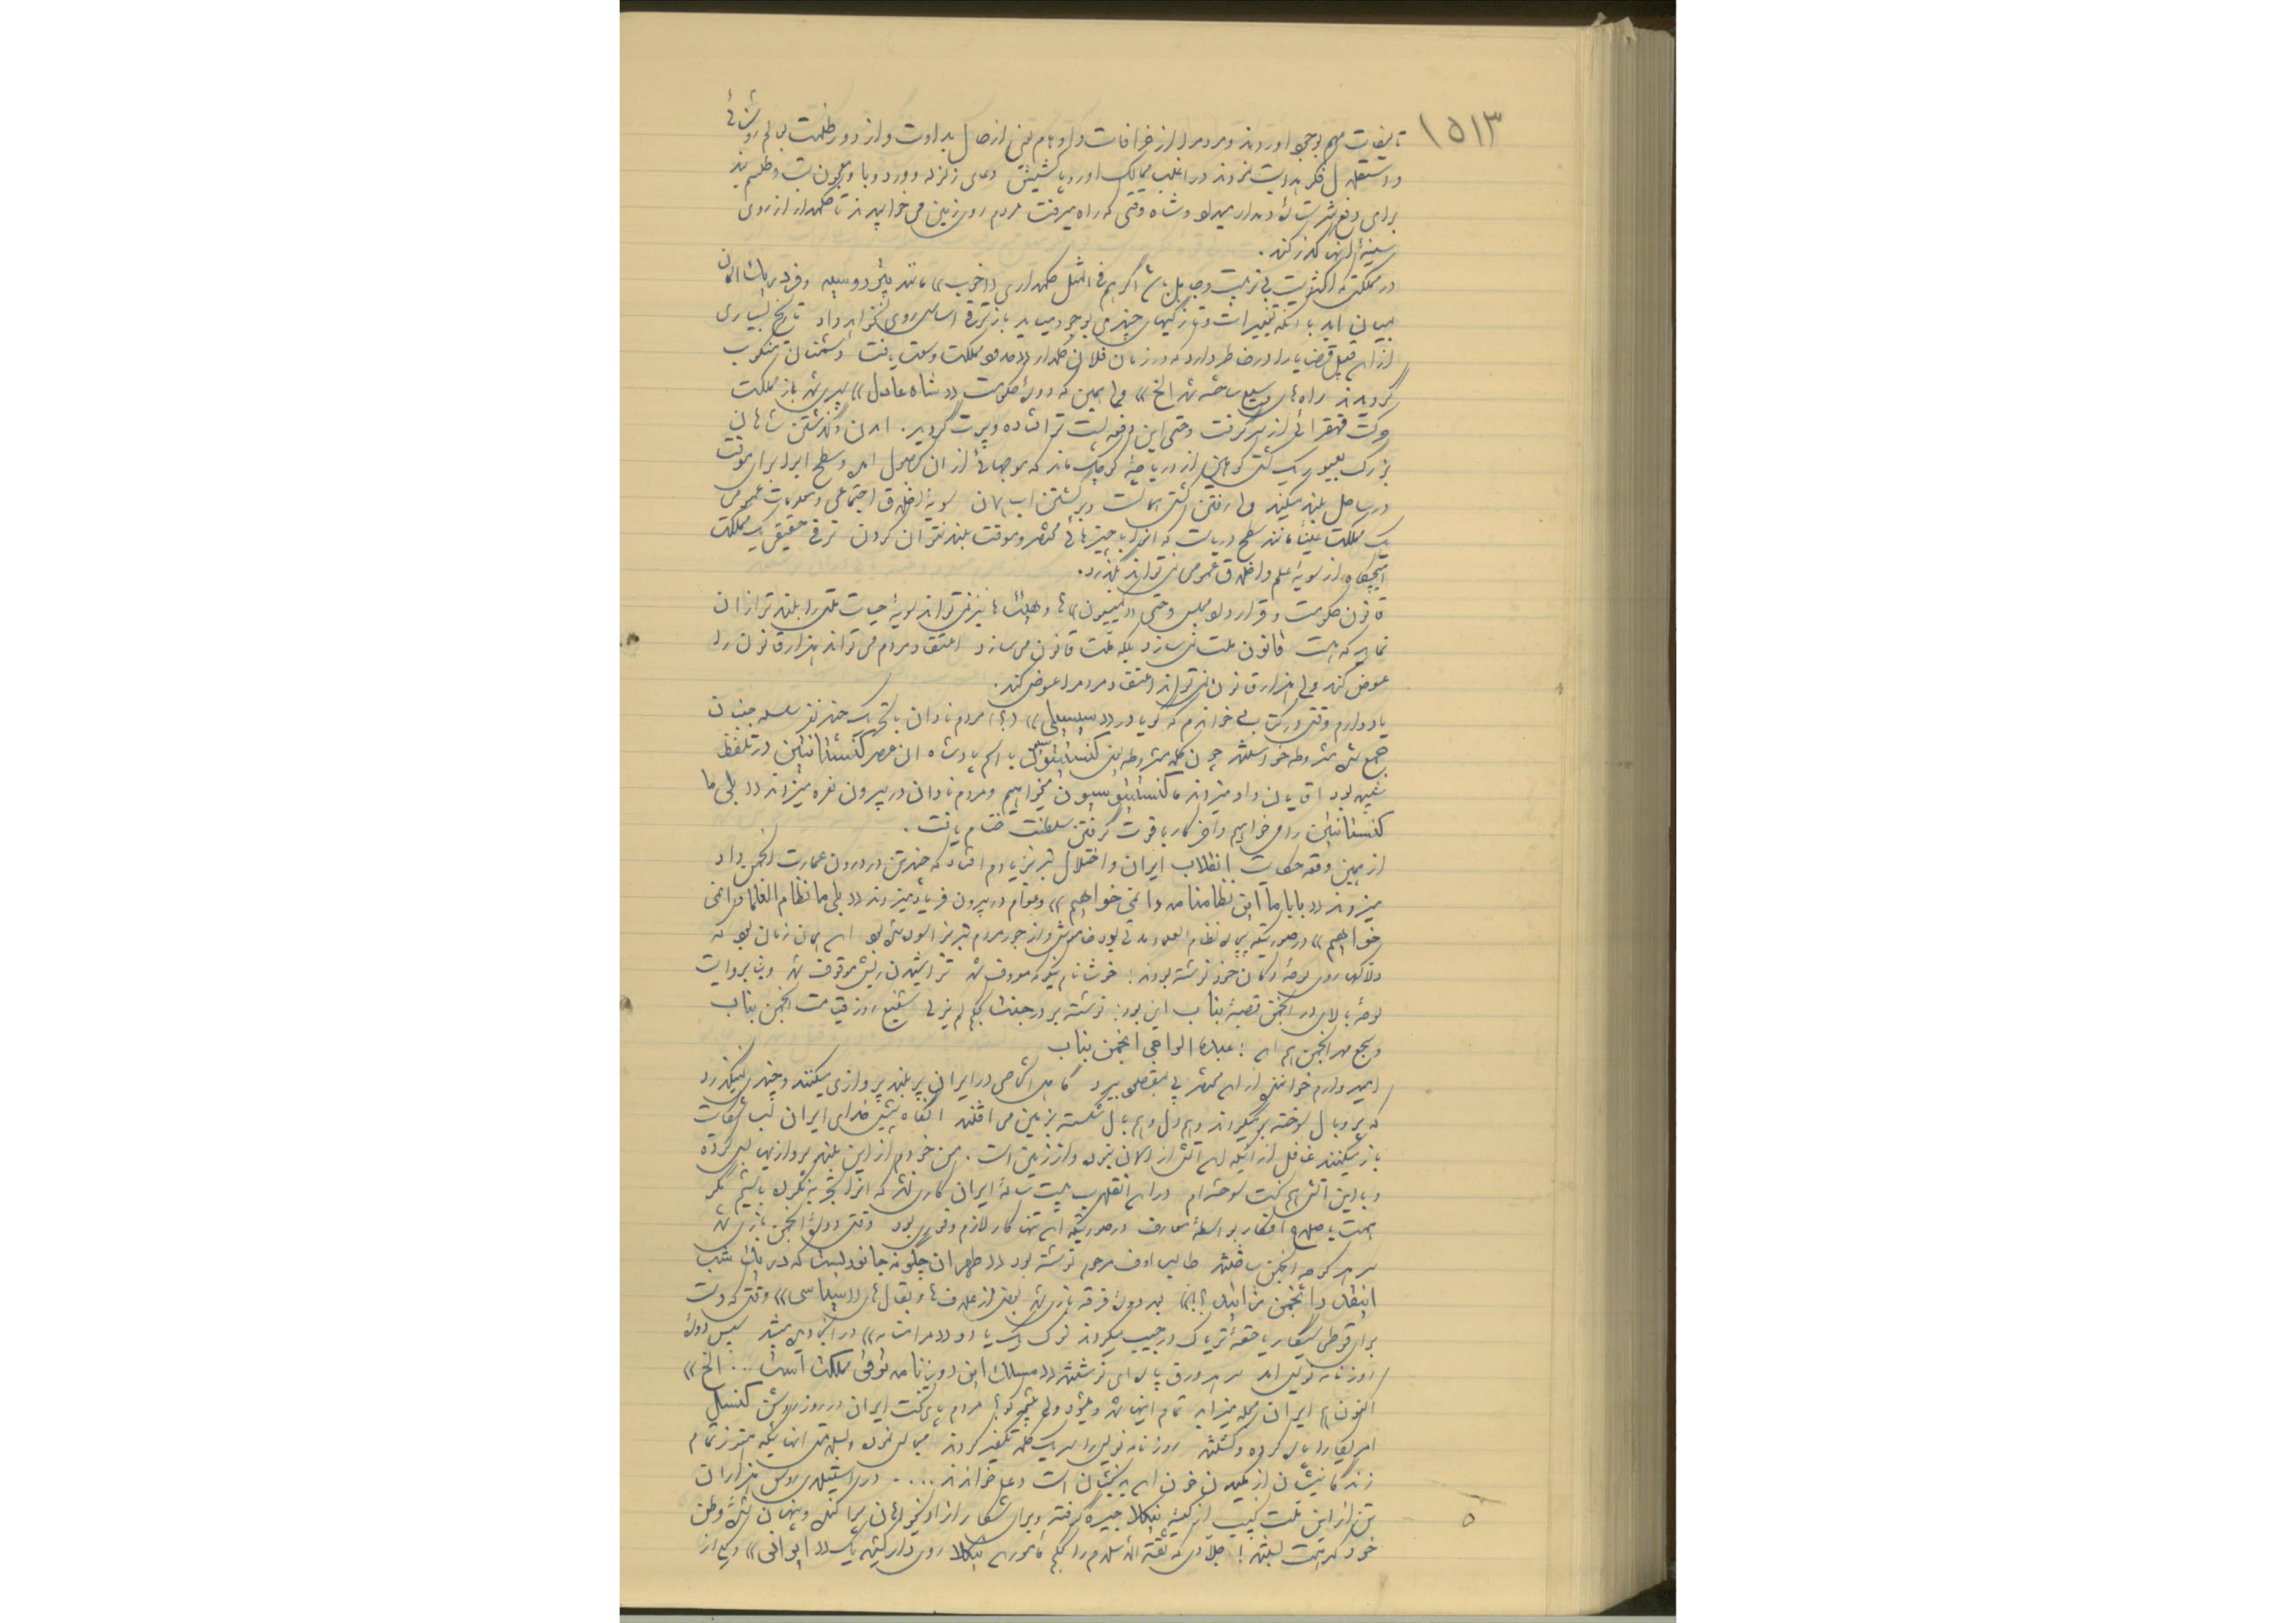 ۱۵۱۳
تالیفات مهم بوجود اوردند و مردم را از خرافات و اوهام یعنی از حال بداوت و از دور ظلمت بعالم روشنائی
و استقلال فکر هدایت نمودند در اغلب ممالک اروپا کشیش دعای زلزله و ورد وبا و معجون تب و طلسم
برای دفع میداد و شاه وقتی که راه میرفت مردم روی زمین می خوابیدند تا حکمدار از روی
سینهٔ انها گذر کند .
در مملکتی که اکثریت بی تربیت و جاهل باشد اگر هم فی المثل حکمداری «خوب» مانند و فردریک المان
بمیان اید با انکه تغییرات و تازگیهای چندی بوجود میاید باز ترقی اساسی روی نخواهد داد تاریخ بسیاری
از این قبیل قضایا را در خاطر دارد که در زمان فلان حکمدار مملکت وسعت یافت دشمنان منکوب
گردیدند راه های وسیع ساخته شد الخ» ولی همین که دورهٔ حکومت «شاه عادل» سپری شد باز مملکت
حرکت قهقرائی از سر گرفت و حتی این دفعه پست تر افتاده و پرت گردید . امدن و گذشتن شاهان
بزرگ بعبور یک کشتی کوهین از دریاچهٔ کوچک ماند که موجهائی از ان حاصل امده و سطح اب را برای موقت
در ساحل بلند میکند ولی رفتن کشتی همانست و برگشتن اب همان سویهٔ اخلاق اجتماعی و معلومات عمومی
یک مملکت عینا مانند سطح دریاست که انرا با چیزهائی مختصر و موقت بلند نتوان کردن ترقی حقیقی یک مملکت
هیچگاه از سویهٔ علم و اخلاق عمومی نمی تواند بگذرد .
قانون حکومت و قرارداد مجلس و حتی «کمیسیون» ها و هیئت ها نیز نمی تواند سویهٔ حیات ملتی را بلندتر از ان
نماید که هست قانون ملت نمی سازد بلکه ملت قانون می سازد اعتقاد مردم می تواند هزار قانون را
عوض کند ولی هزار قانون نمی تواند اعتقاد مردم را عوض کند .
یاد دارم وقتی در کتابی خواندم که گویا در «سیسیلی» (؟) مردم نادان بتحریک چند نفر سلسله جنبان
جمع شده مشروطه خواستند چون کلمه مشروطه یعنی کنستیتوسیون با اسم پادشاه ان عصر کنستانتین در تلفظ
شبیه بود اقایان داد میزدند ما کنستیتوسیون میخواهیم و مردم نادان در بیرون نعره میزدند «بلی ما
کنستانتین را می خواهیم و اخر کار با قوت گرفتن سلطنت ختام یافت .
از همین وقعه حکایت انقلاب ایران و اختلال تبریز یادم افتاد که چند تن در درون عمارت انجمن داد
میزدند «بابا ما این نظامنامه را نمی خواهیم» و عوام در بیرون فریاد میزدند «بلی ما نظام العلما را نمی
خواهیم» در صورتیکه بیچاره نظام العلما مدتی بود خاموش و از جور مردم تبریز اسوده شده بود این همان زمان بود که
دلاکها روی لوحهٔ دکان خود نوشته بودند : خوش نام نیکو که معروف شد تراشیدن ریش موقوف شد و بنا بروایت
لوحهٔ بالای در انجمن قصبهٔ بناب این بود : نوشته بر در جنت بحکم لم یزلی شفیع روز قیامت انجمن بناب
و سجع مهر انجمن هم این : عبده الراجی انجمن بناب
امیدوارم خواننده از این مختصر پی بمفصل ببرد گاهی اشخاصی در ایران پر بلند پروازی میکنند و چندی نمیگذرد
که پر و بال سوخته برمیگردند و هم دل و هم بال شکسته بزمین می افتند انگاه پیش خدای ایران لب شکایت
باز میکنند غافل از انکه این اتش از اسمان نبوده و از زمین است . من خود هم از این بلند پروازیها بسی کرده
و با این اتش هم سخت سوخته ام در این انقلاب بیست سالهٔ ایران کاری نشد که انرا تجربه نکرده باشیم مگر
همت باصلاح افکار بواسطهٔ معارف در صورتیکه این تنها کار لازم و فوری بود وقتی دورهٔ انجمن بازی شد
در هر کوچه انجمنی ساختند طالب اوف مرحوم نوشته بود «طهران چگونه جانوریست که در یک شب
انقدر انجمن زائید؟!» بعد دورهٔ فرقه بازی شد بعضی از علاف ها و بقال های «سیاسی» وقتی که دست
برای قوطی سیگار یا حقهٔ تریاک در جیب میکردند ترک یک یا دو «مرامنامه» در انجا دیده میشد سپس دورهٔ
روزنامه نویسی امد در هر ورق پاره ای نوشتند «مسلک این روزنامه ترقی مملکت است ... الخ»
اکنون هم ایران مجله میزاید تمام اینها شد و میشود ولی نتیجه کو؟ مردم پایتخت ایران در روز روشن کنسول
امریکا را پاره کرده و کشتند روزنامه نویس را بسر یک کلمه تکفیر کردند
زندگانیشان از مکیدن خون این بدبختان است دعا خواندند .... در استیلای روس هزاران
تن از این ملت نجیب از کیسهٔ نیکلا جیره گرفته و برای شکار ازادیخواهان پراکنده و پنهان شده وطن
خود کمر همت بستند ! جلادی که ثقة الاسلام را بحکم مامورین نیکلا روی دار کشید یک «ایرانی» و یکی از
۵